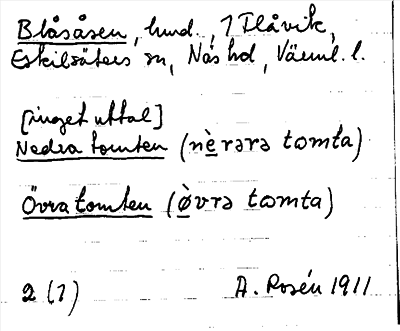 Blåsåsen, hmd., 1 Flåvik,
Eskilsäters sn, Näs hd, Värml. l.
[inget uttal]
Nedra tomten (nèrərə tomta)
Övra tomten (òvrə tomta)
2 (1) A. Rosén 1911